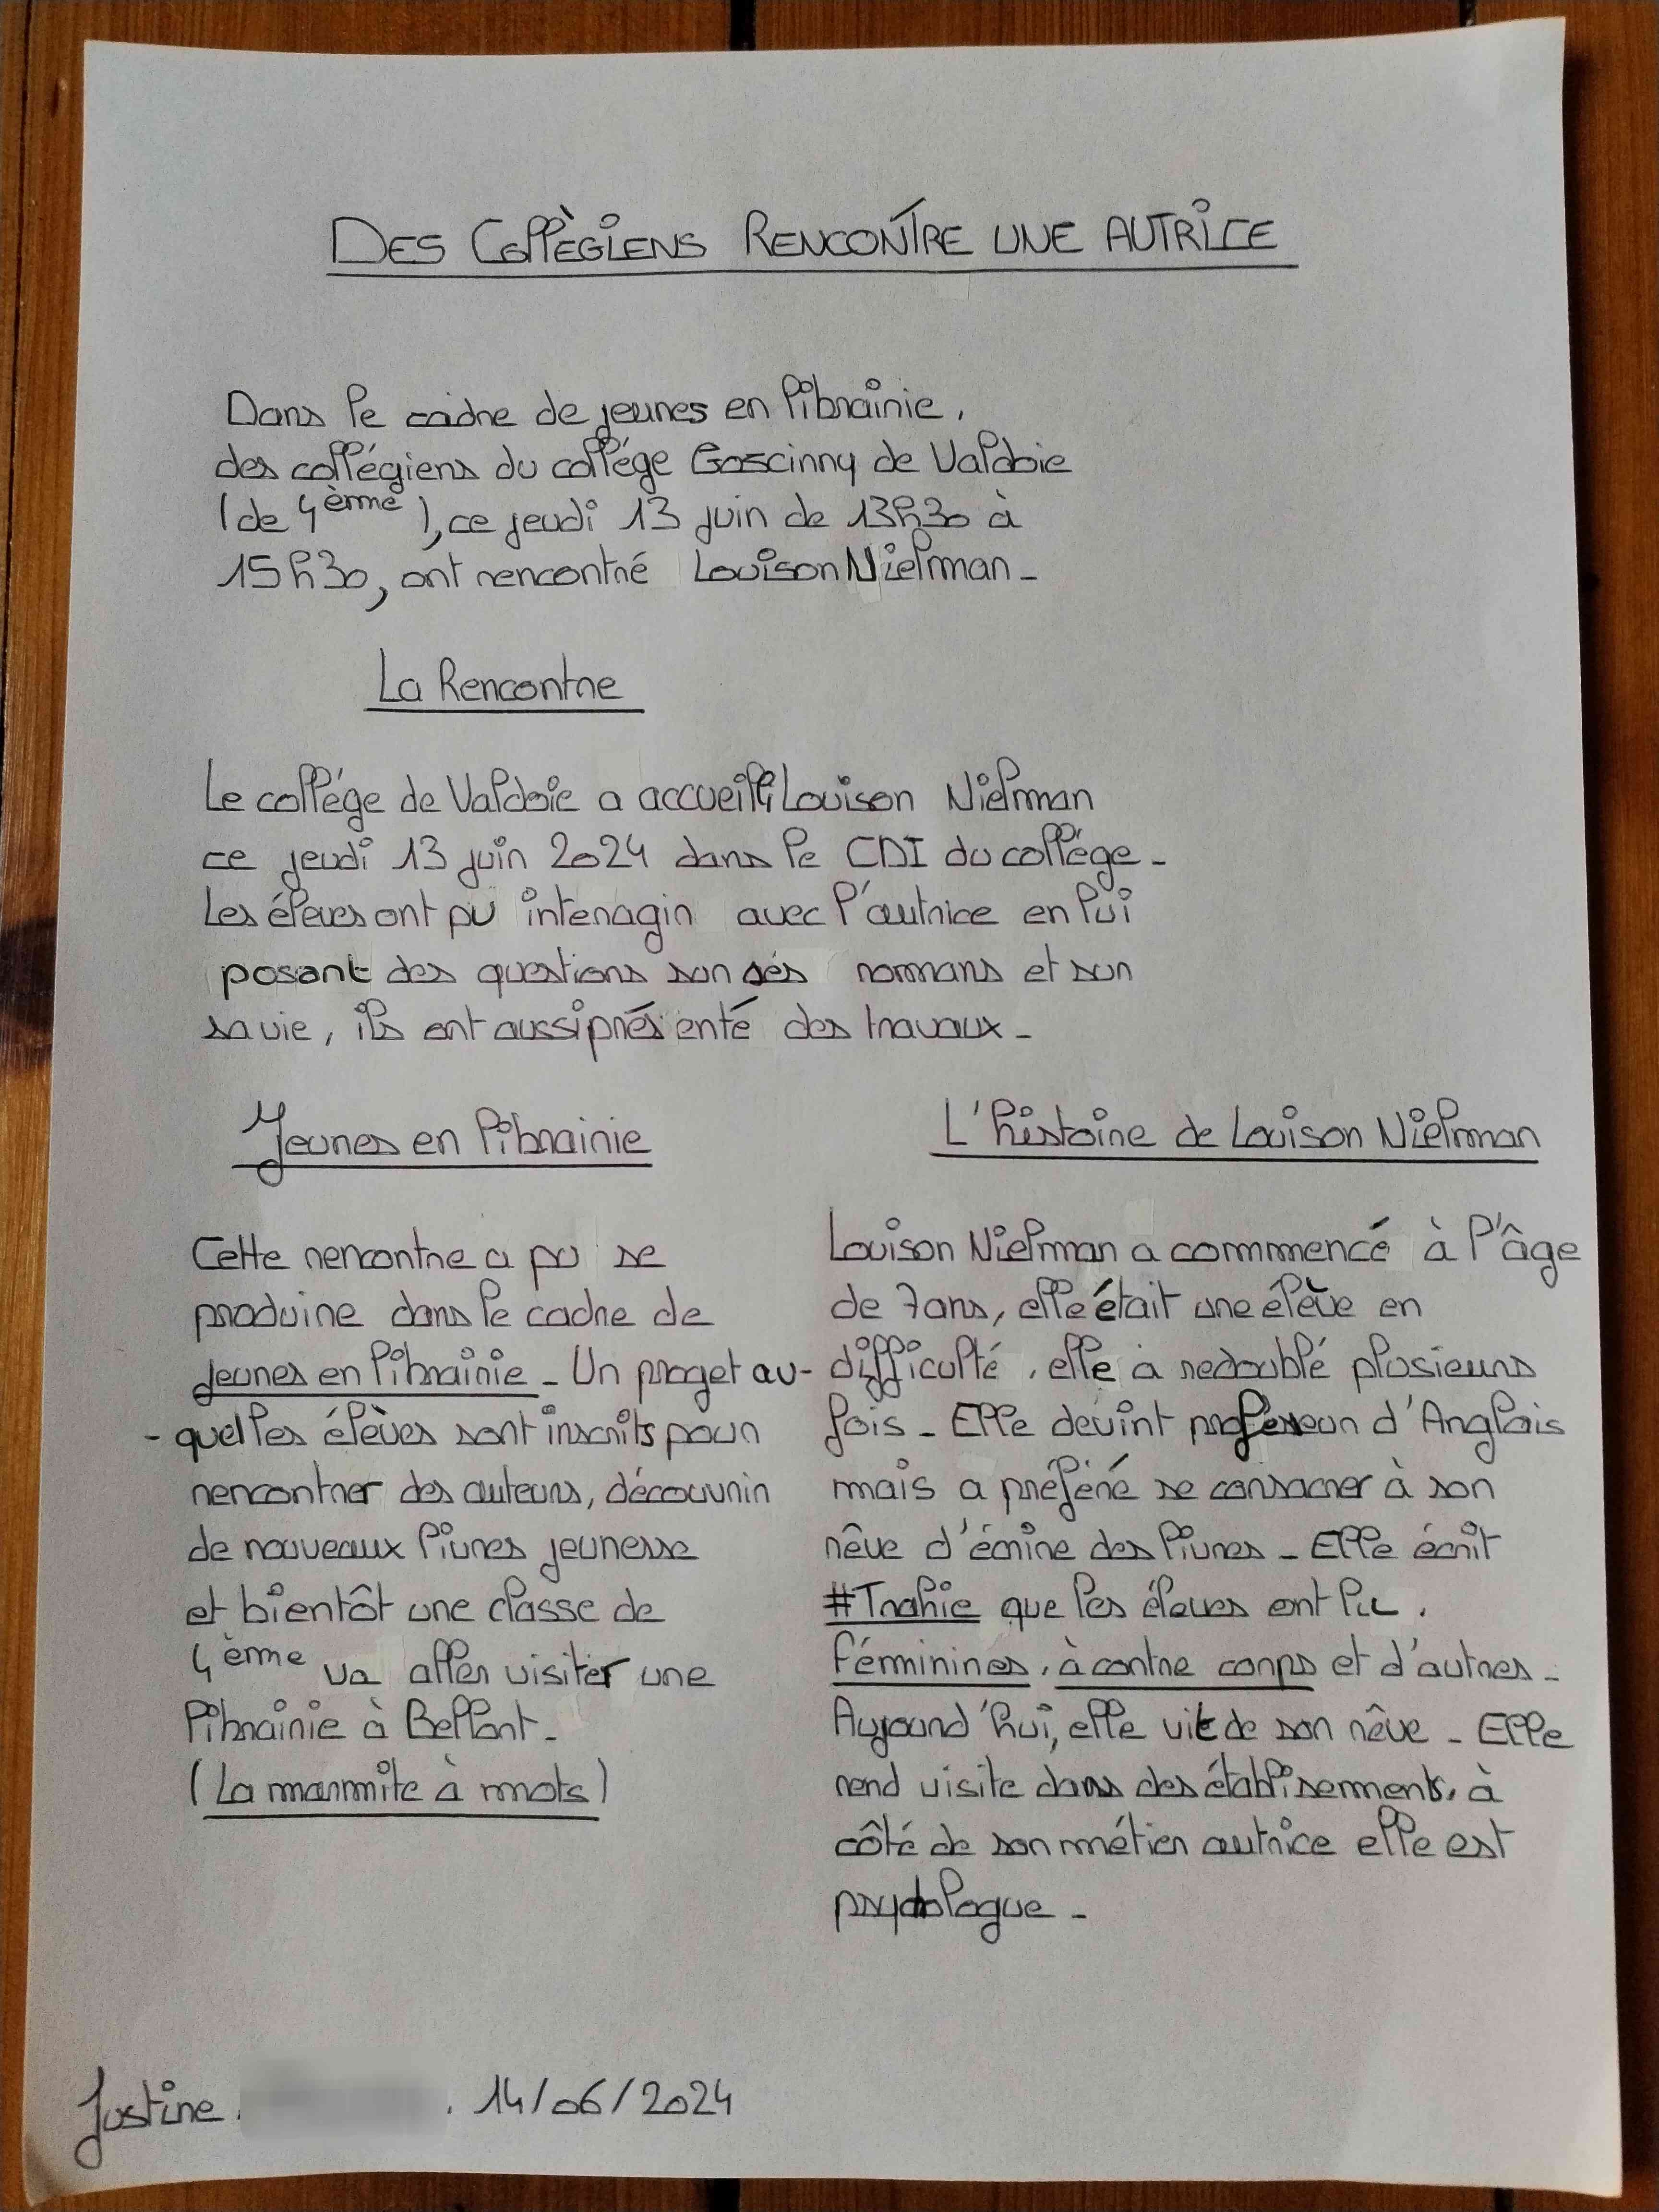 DES COLLÈGIENS RENCONTRE UNE AUTRICE
Dans le cadre de jeunes en librairie,
des collégiens du collége Goscinny de Valdoie
(de 4ème), ce jeudi 13 juin de 13h30 à
15h30, ont rencontré Louison Nielman.
La Rencontre
Le collége de Valdoie a accueilli Louison Nielman
ce jeudi 13 juin 2024 dans le CDI du collége.
Les éleves ont pu interagir avec l'autrice en lui
posant des questions sur ses romans et sur
sa vie, ils ont aussi présenté des travaux.
Jeunes en librairie
Cette rencontre a pu se
produire dans le cadre de
jeunes en librairie. Un proget au-
-quel les élèves sont inscrits pour
rencontrer des auteurs, découvrir
de nouveaux livres jeunesse
et bientôt une classe de
4ème va aller visiter une
librairie à Belfort.
(La marmite à mots)
L'histoire de Louison Nielman
Louison Nielman a commencé à l'âge
de 7 ans, elle était une élève en
difficulté, elle a redoublé plusieurs
fois. Elle devint professeur d'Anglais
mais a préféré se consacrer à son
rêve d'écrire des livres. Elle écrit
#Trahie que les éleves ont lu,
Féminines, à contre corps et d'autres.
Aujourd'hui, elle vit de son rêve. Elle
rend visite dans des établisements, à
côté de son métier autrice elle est
psychologue.
Justine . . 14/06/2024